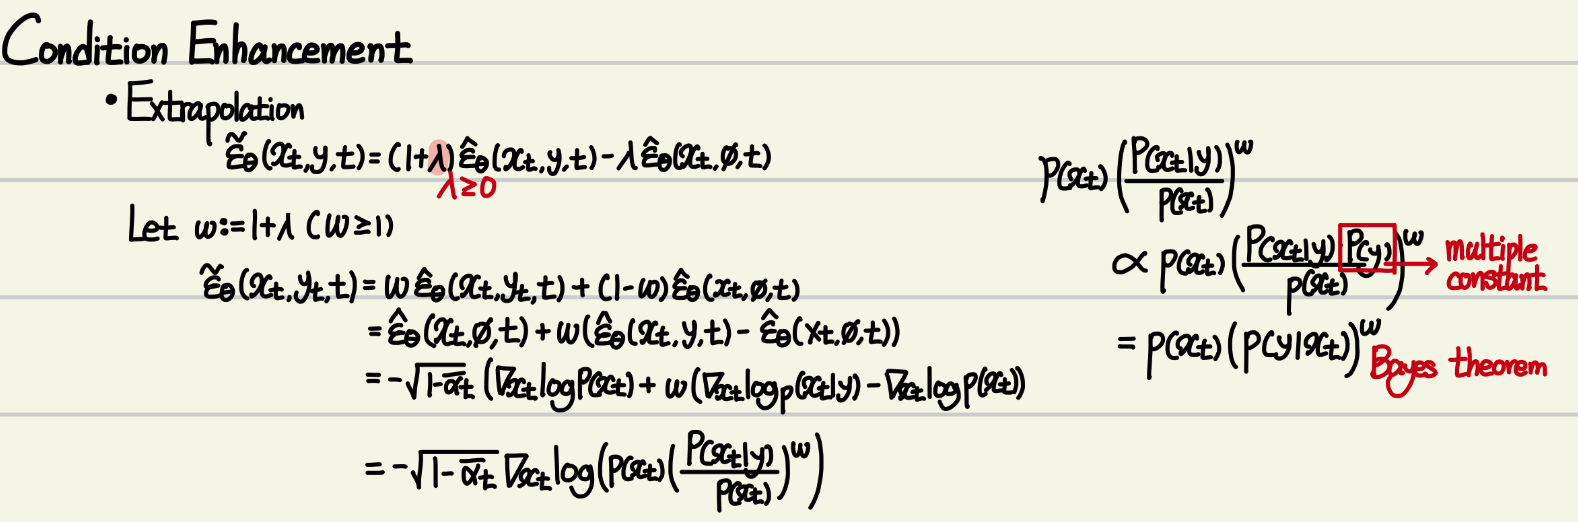 Condition Enhancement
• Extrapolation
ε̃θ(xt,y,t) = (1+λ) ε̂θ(xt,y,t) - λ ε̂θ(xt,∅,t)
λ ≥ 0
Let w := 1+λ (w ≥ 1)
ε̃θ(xt,yt,t) = w ε̂θ(xt,yt,t) + (1-w) ε̂θ(xt,∅,t)
= ε̂θ(xt,∅,t) + w(ε̂θ(xt,y,t) - ε̂θ(xt,∅,t))
= -√(1-ᾱt) (∇xt log P(xt) + w(∇xt log p(xt|y) - ∇xt log p(xt)))
= -√(1-ᾱt) ∇xt log(P(xt)(P(xt|y)/P(xt))^w)
P(xt)(P(xt|y)/P(xt))^w
∝ P(xt)(P(xt|y) P(y)/P(xt))^w → multiple
constant
= P(xt)(P(y|xt))^w
Bayes theorem